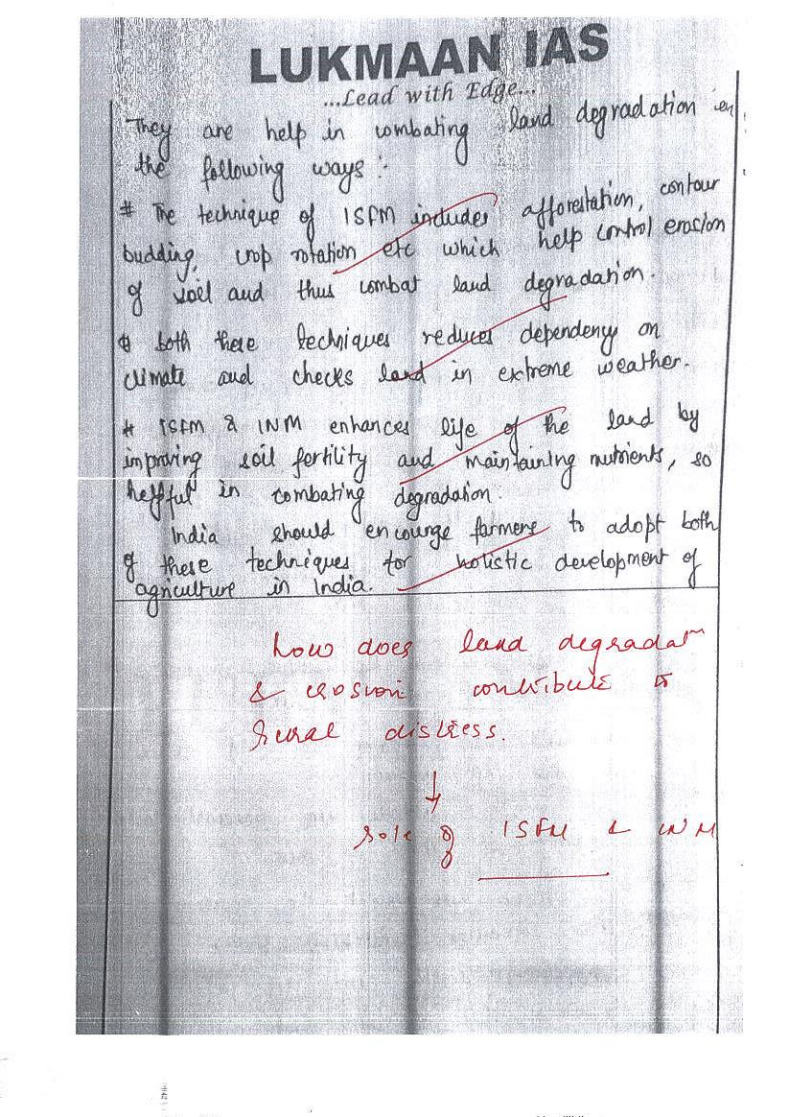 LUKMAAN IAS
...Lead with Edge...
They are help in combating land degradation in
the following ways :-
# The technique of ISFM includes afforestation, contour
budding, crop rotation etc which help control erosion
of soil and thus combat land degradation.
# both these techniques reduces dependency on
climate and checks land in extreme weather.
# ISFM & INM enhances life of the land by
improving soil fortility and maintaining nutrients, so
helpful in combating degradation.
India should encourge farmers to adopt both
of these techniques for holistic development of
agriculture in India.
how does land degradatn
& erosion contribute to
Rural distress.
↓
role of ISFM & INM